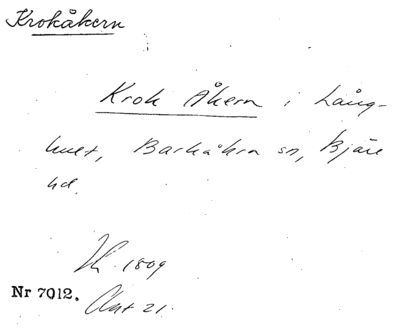 Krokåkern
Krok Åkern i Lång-
hult, Barkåkra sn, Bjäre
hd.
1809
Nr 7012. Akt 21.